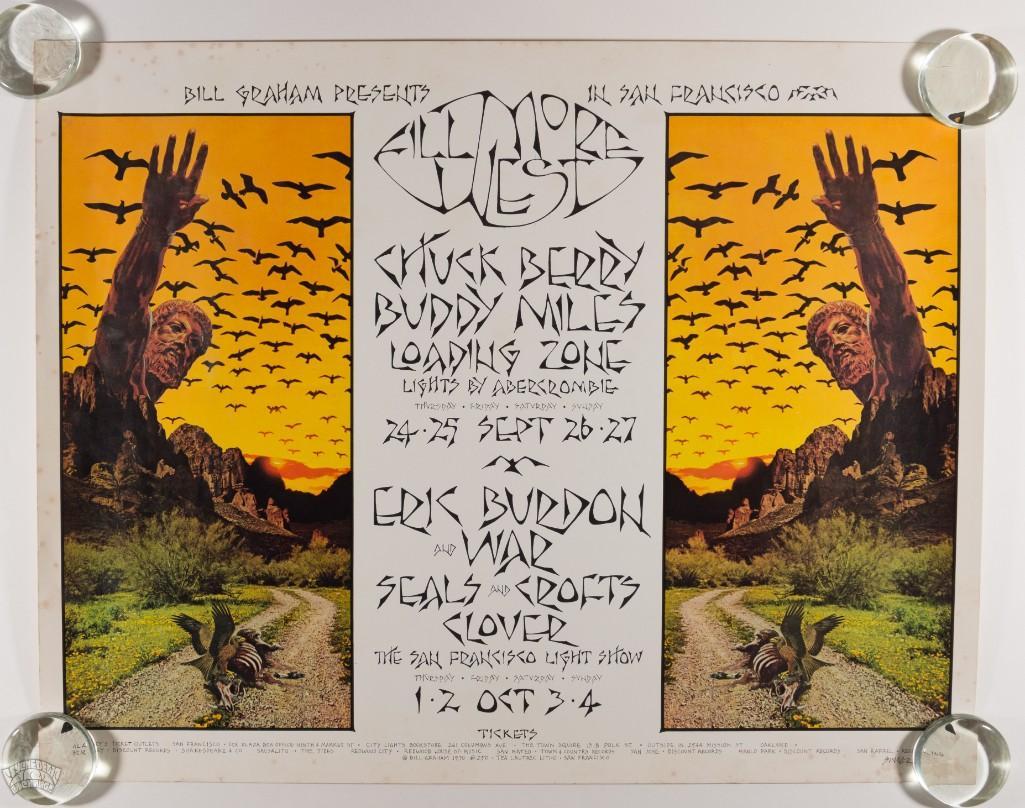 BILL GRAHAM PRESENTS IN SAN FRANCISCO
FILLMORE
WEST
CHUCK BERRY
BUDDY MILES
LOADING ZONE
LIGHTS BY ABERCROMBIE
THURSDAY • FRIDAY • SATURDAY • SUNDAY
24·25 SEPT 26·27
ERIC BURDON
AND WAR
SEALS AND CROFTS
CLOVER
THE SAN FRANCISCO LIGHT SHOW
THURSDAY • FRIDAY • SATURDAY • SUNDAY
1·2 OCT 3·4
TICKETS
TICKET OUTLETS SAN FRANCISCO • BOX OFFICE NINTH & MARKET ST • CITY LIGHTS BOOKSTORE 261 COLUMBUS AVE • THE TOWN SQUIRE 1318 POLK ST • OUTSIDE IN 2544 MISSION ST OAKLAND •
• DISCOUNT RECORDS • SHAKESPEARE & CO SAUSALITO • THE TIDES REDWOOD CITY • REDWOOD HOUSE OF MUSIC SAN MATEO • TOWN & COUNTRY RECORDS SAN JOSE • DISCOUNT RECORDS MENLO PARK • DISCOUNT RECORDS SAN RAFAEL •
© BILL GRAHAM 1970 #250 • TEA LAUTREC LITHO • SAN FRANCISCO